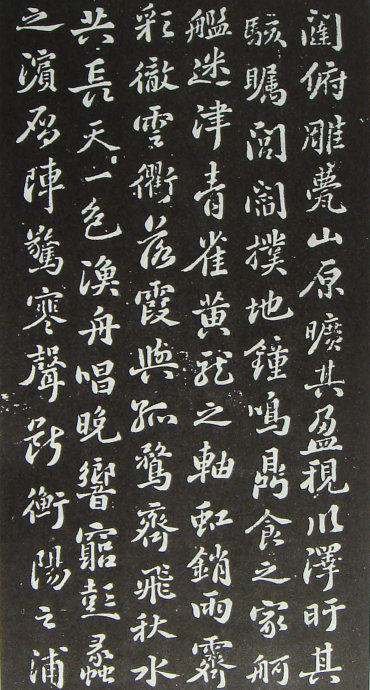 闥俯雕甍山原曠其盈視川澤盱其
駭矚閭閻撲地鐘鳴鼎食之家舸
艦迷津青雀黃龍之軸虹銷雨霽
彩徹雲衢落霞與孤鶩齊飛秋水
共長天一色漁舟唱晚響窮彭蠡
之濱雁陣驚寒聲斷衡陽之浦